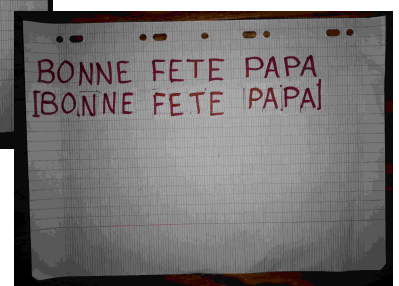 BONNE FETE PAPA
[BONNE FETE PAPA]